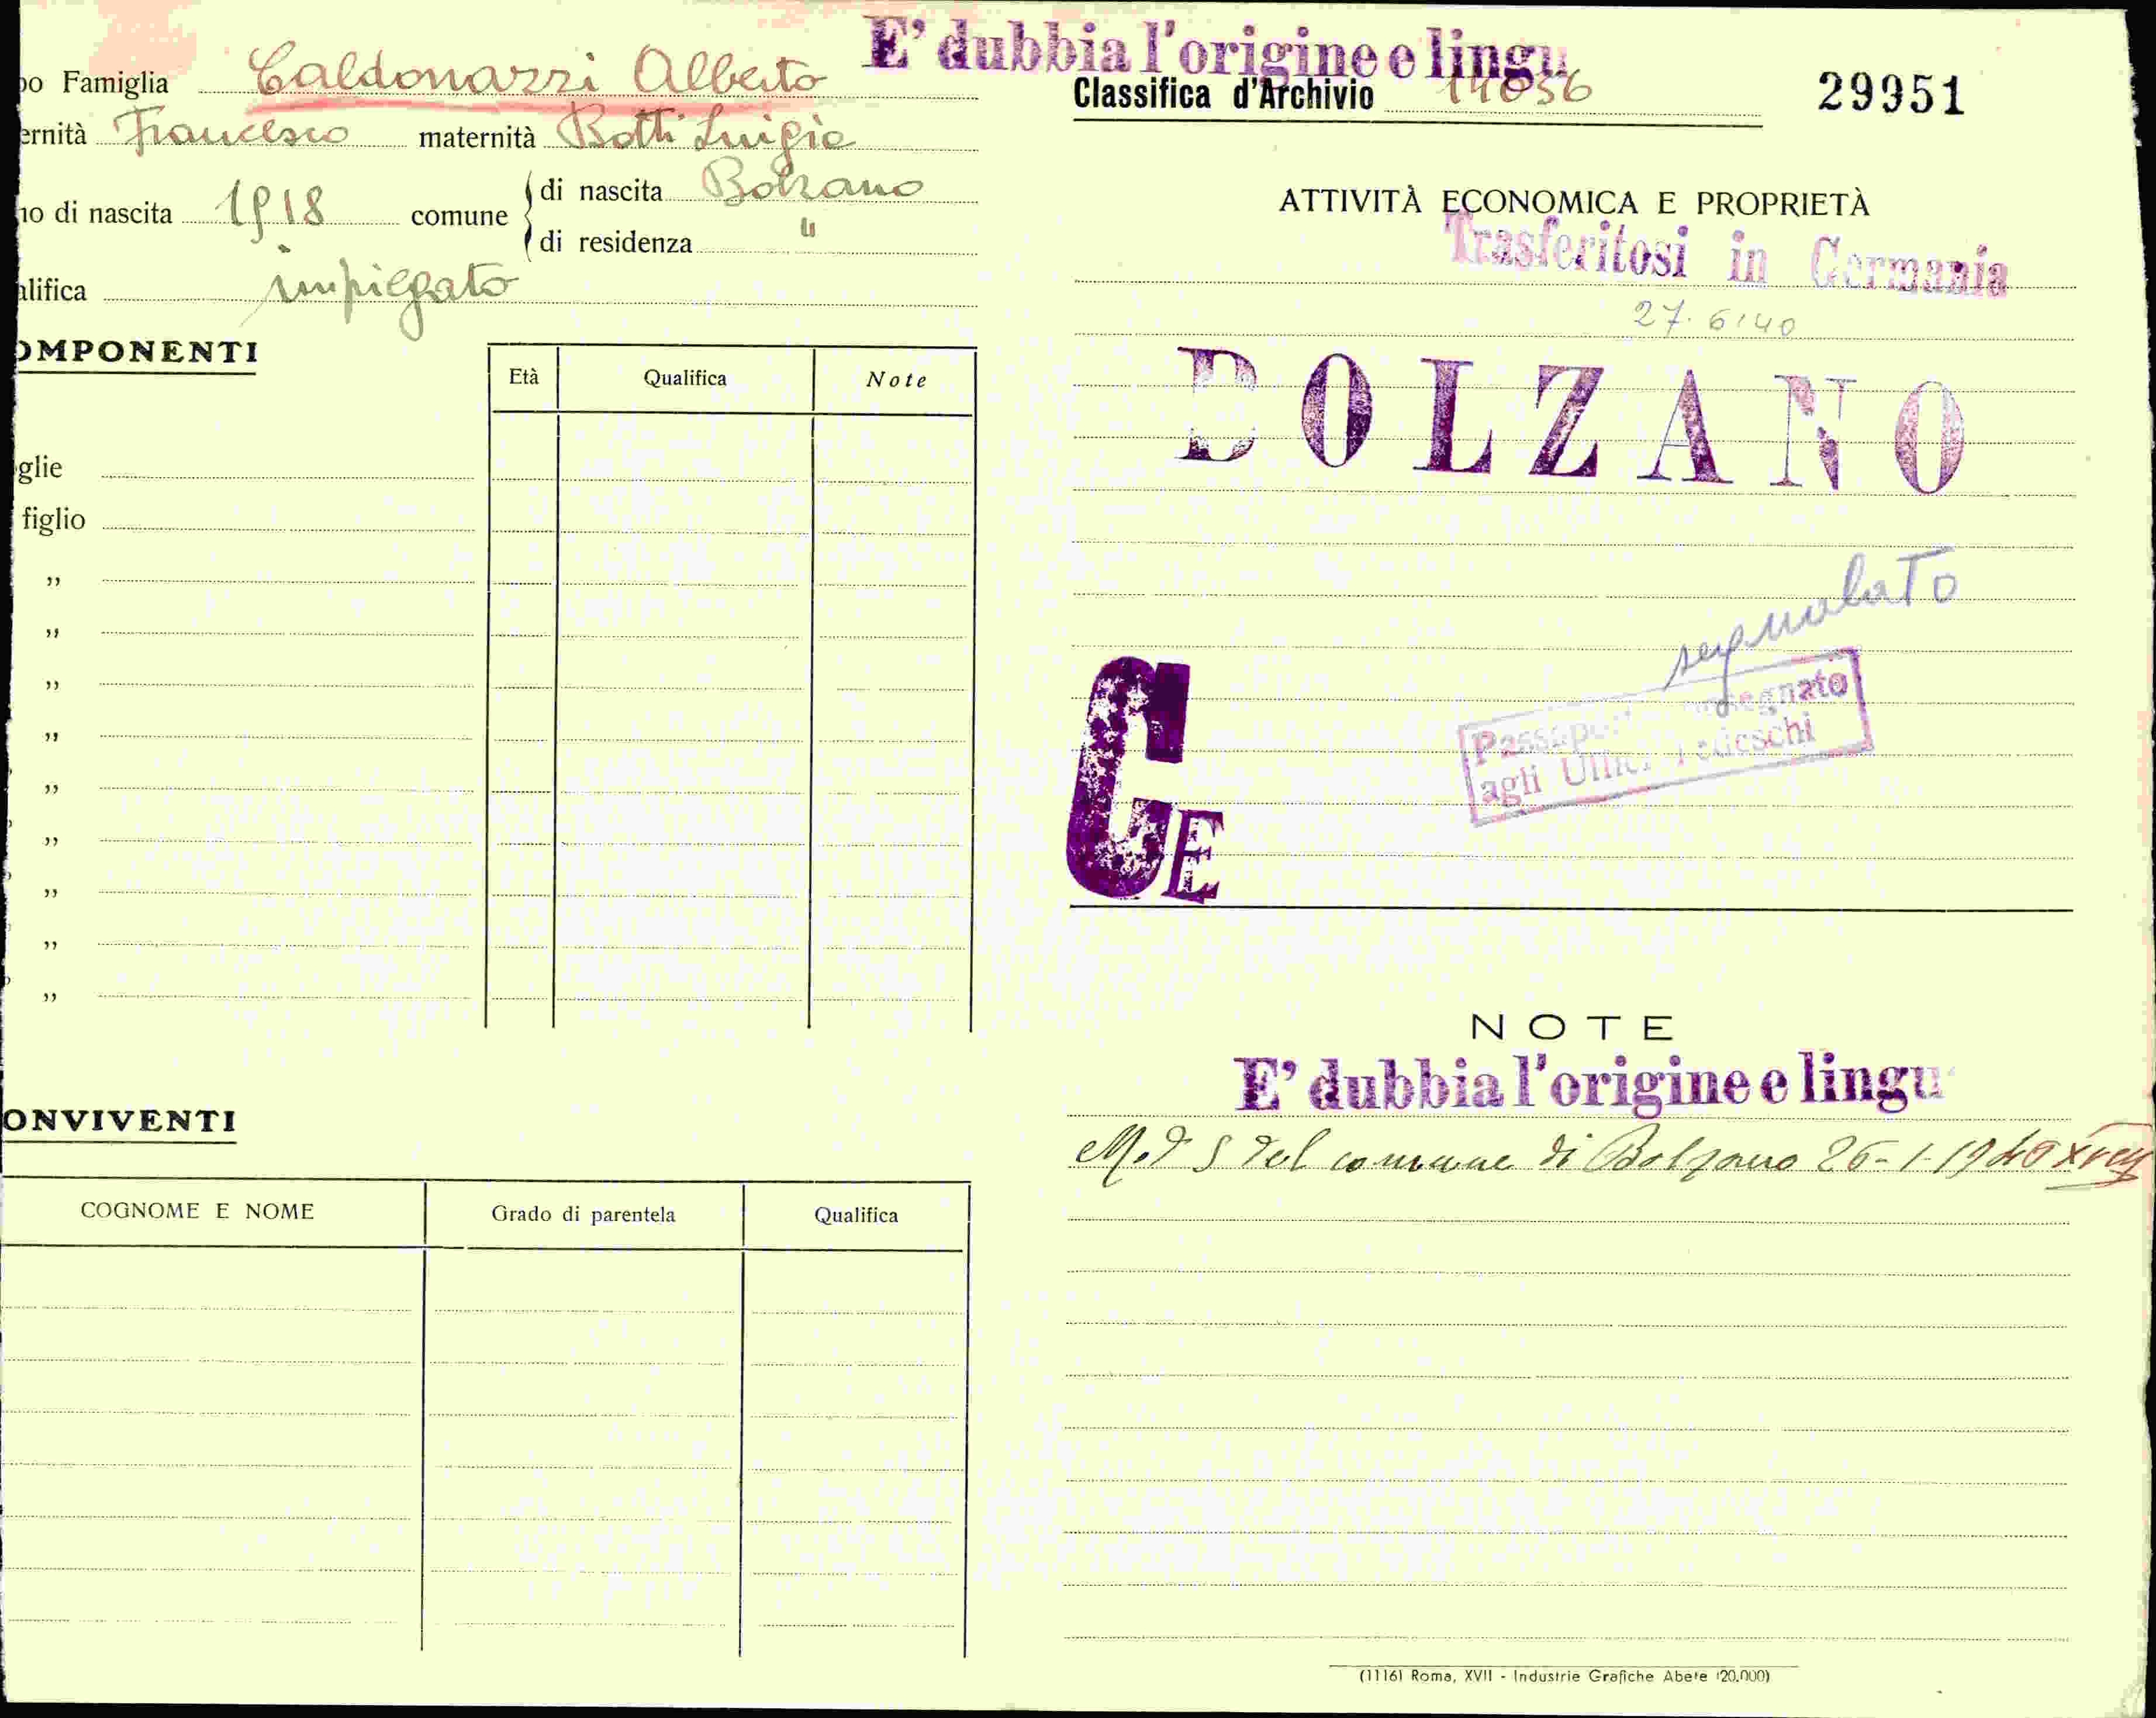 E' dubbia l'origine e lingu
po Famiglia Caldonazzi Alberto
ernità Francesco maternità Botti Luigia
no di nascita 1918 comune di nascita Bolzano
di residenza "
alifica impiegato
OMPONENTI
Età Qualifica Note
glie
figlio
"
"
"
"
"
"
"
"
"
ONVIVENTI
COGNOME E NOME Grado di parentela Qualifica
Classifica d'Archivio 14056
29951
ATTIVITÀ ECONOMICA E PROPRIETÀ
Trasferitosi in Germania
27.6.40
BOLZANO
segnalato
agli Uffici Tedeschi
CE
NOTE
E' dubbia l'origine e lingu
del comune di Bolzano 26-1-1940
(1116) Roma, XVII - Industrie Grafiche Abete (20.000)